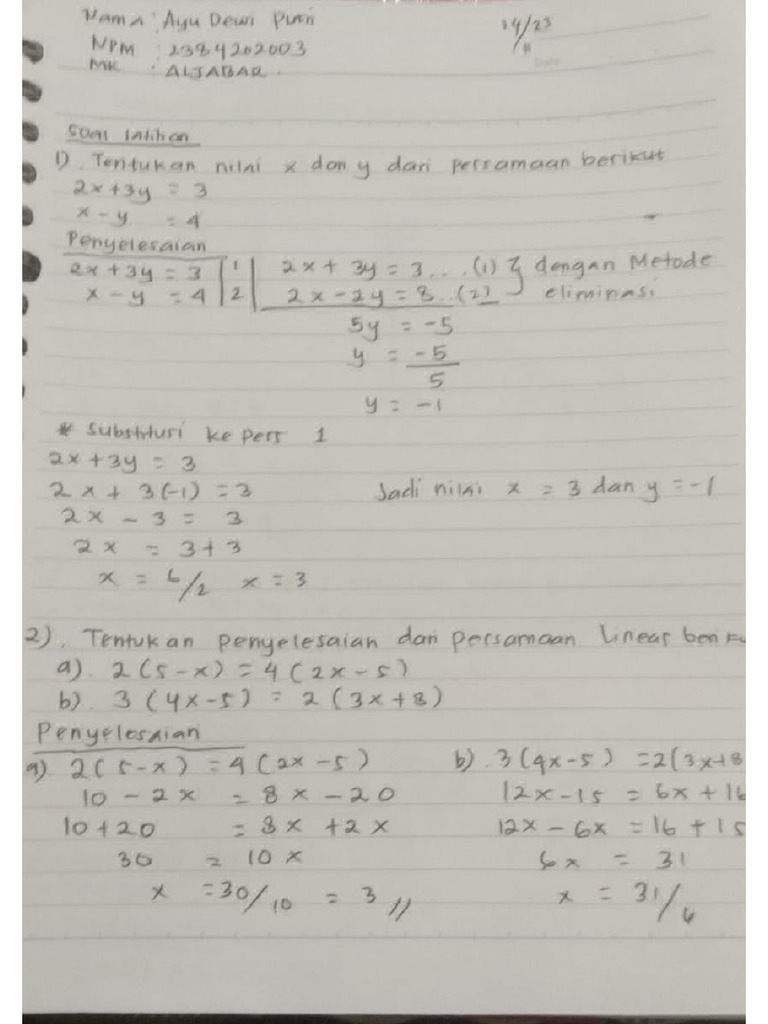 Nama : Ayu Dewi Putri
14/23
11
NPM : 2384202003
Date
MK : ALJABAR.
Soal latihan
1). Tentukan nilai x dan y dari persamaan berikut
2x + 3y = 3
x - y = 4
Penyelesaian
2x + 3y = 3 | 1 | 2x + 3y = 3 ... (1) } dengan Metode
x - y = 4 | 2 | 2x - 2y = 8 .. (2) eliminasi
5y = -5
y = -5/5
y = -1
* Substitusi ke pers 1
2x + 3y = 3
2x + 3(-1) = 3 Jadi nilai x = 3 dan y = -1
2x - 3 = 3
2x = 3 + 3
x = 6/2 x = 3
2). Tentukan penyelesaian dari persamaan linear beriku
a). 2(5-x) = 4(2x-5)
b). 3(4x-5) = 2(3x+8)
Penyelesaian
a). 2(5-x) = 4(2x-5) b). 3(4x-5) = 2(3x+8
10 - 2x = 8x - 20 12x - 15 = 6x + 16
10 + 20 = 8x + 2x 12x - 6x = 16 + 15
30 = 10x 6x = 31
x = 30/10 = 3 // x = 31/6